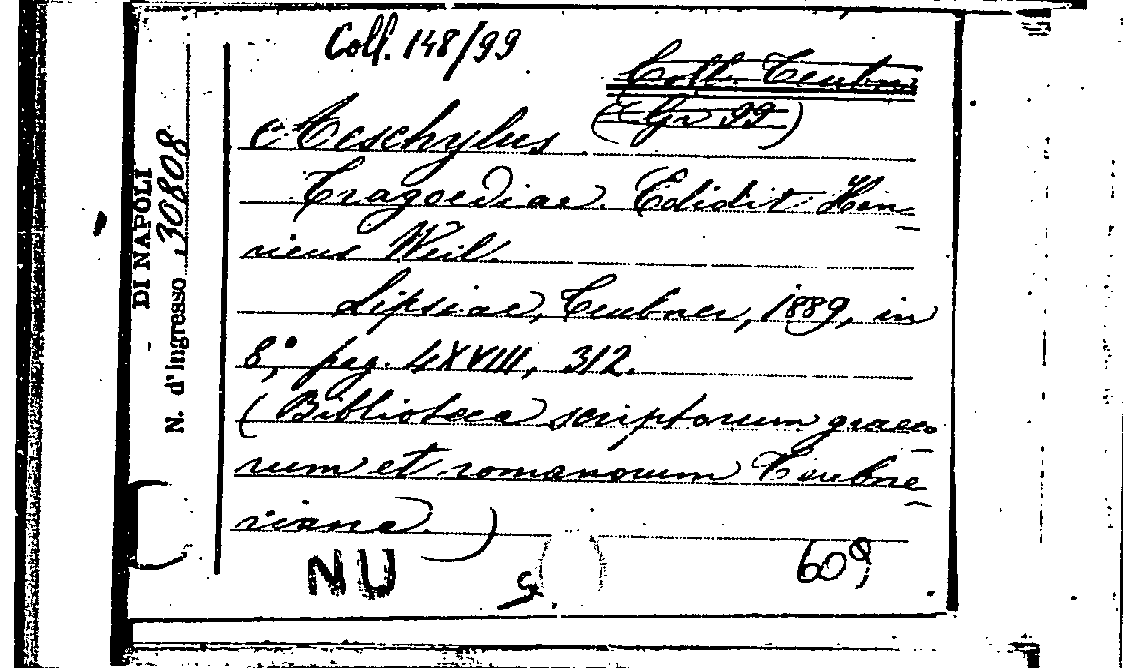 Coll. 148/99
Coll. Teubn.
(Gr 99)
Aeschylus
Tragoediae. Edidit Hen-
ricus Weil.
Lipsiae, Teubner, 1889, in
8°, pag. LXVIII, 312.
(Biblioteca scriptorum graeco-
rum et romanorum Teubne-
riana.)
NU
609
DI NAPOLI
N. d'Ingresso 30808